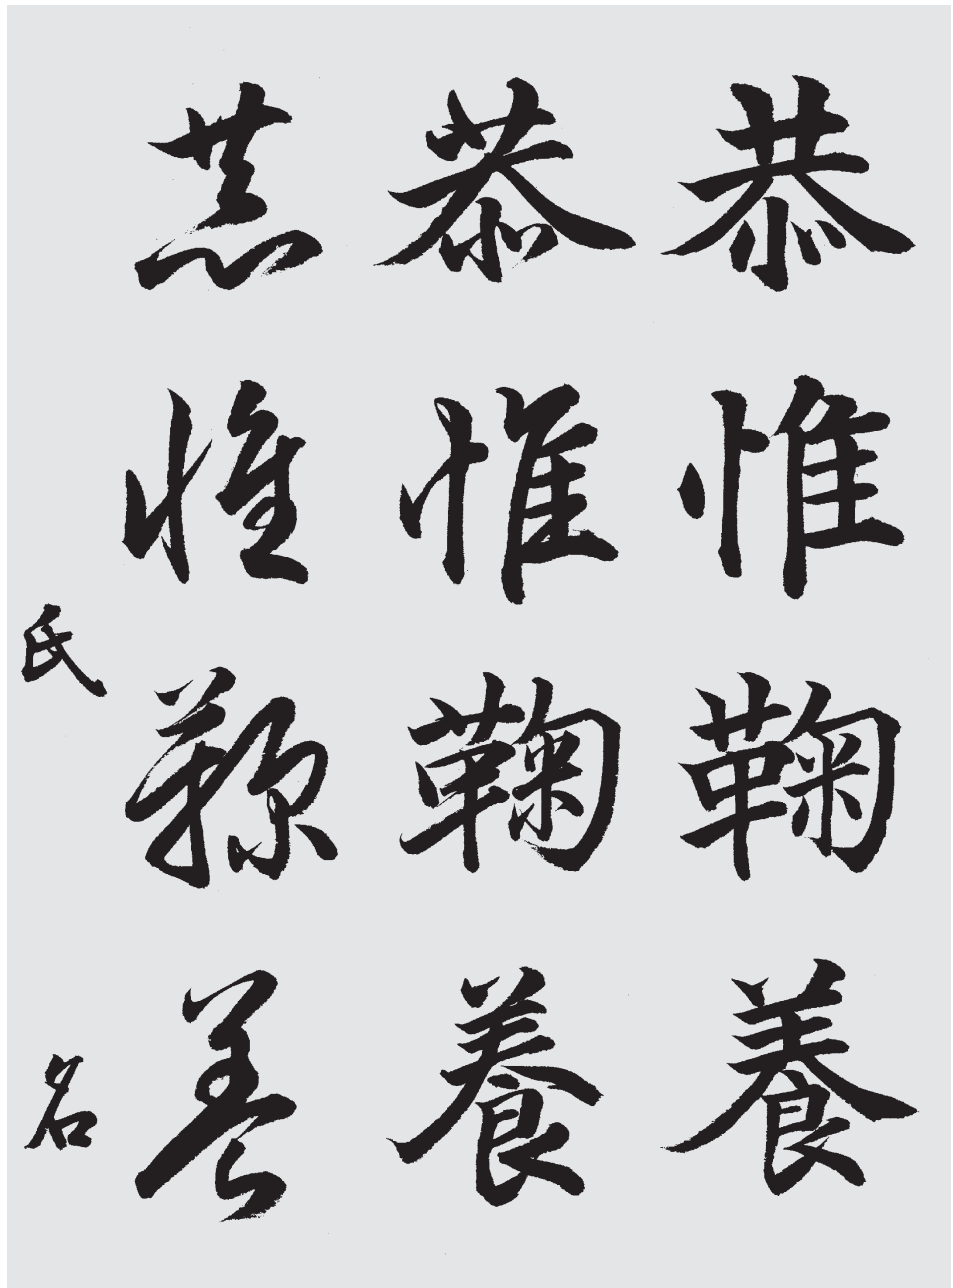 恭惟鞠養
恭惟鞠養
恭惟鞠養
氏名